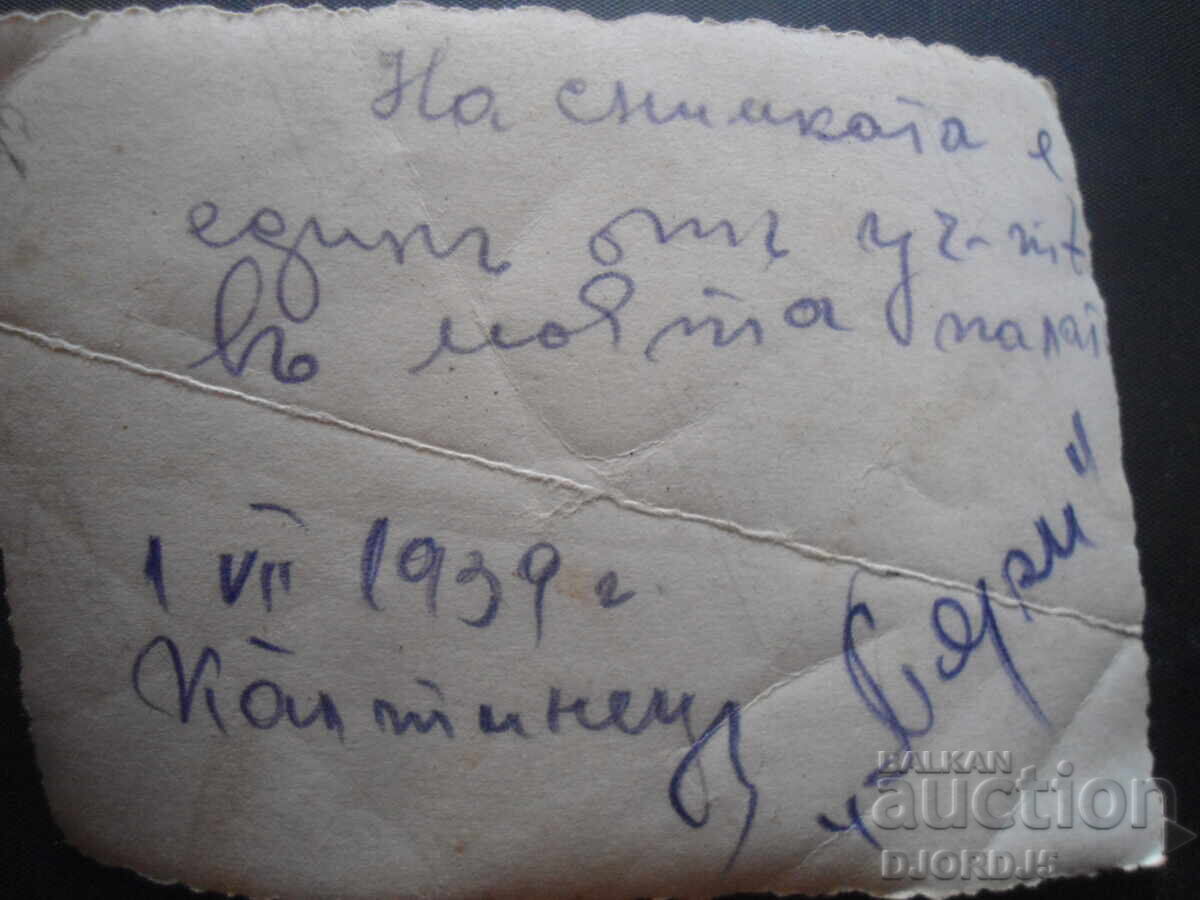 На снимката е
единъ отъ уч-тѣ
въ моята палат
1 VII 1939 г.
Калтинецъ
BALKAN
auction
DJORDJ5